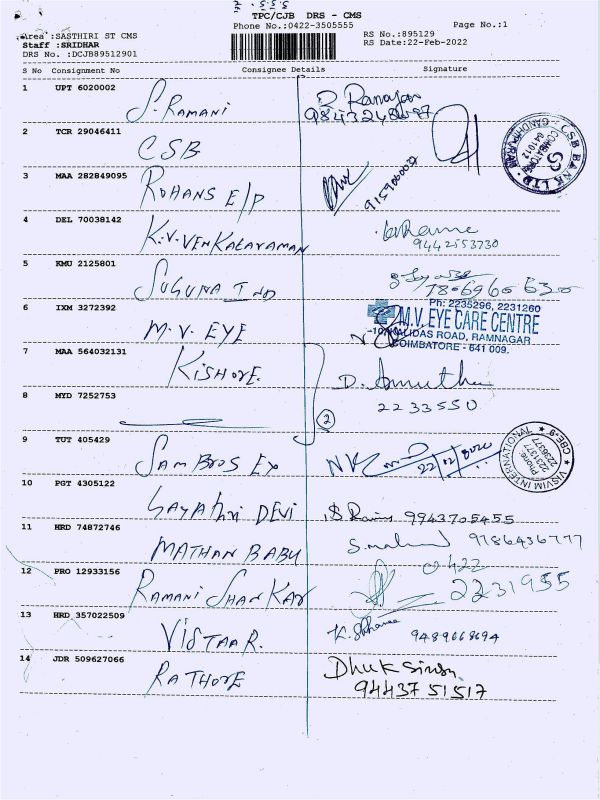 TPC/CJB DRS - CMS
Phone No.:0422-3505555
Page No.:1
Area :SASTHIRI ST CMS
Staff :SRIDHAR
DRS No. :DCJB89512901
RS No.:895129
RS Date:22-Feb-2022
S No Consignment No Consignee Details Signature
1 UPT 6020002 S. RAMANI
2 TCR 29046411 CSB
CSB BANK LTD. GANDHIPURAM COIMBATORE 641012
3 MAA 282849095 ROHANS E/P 9159060027
4 DEL 70038142 K.V. VENKATARAMAN
9442553730
5 KMU 2125801 SUGUNA IND
Ph: 2235296, 2231260
6 IXM 3272392 M.V. EYE M.V. EYE CARE CENTRE
KALIDAS ROAD, RAMNAGAR
COIMBATORE - 641 009.
7 MAA 564032131 KISHORE. D. Amutha
8 MYD 7252753 2 2233550
9 TUT 405429 SAMBROS EX
VISVIM INTERNATIONAL CBE-9 Phone: 2231377 2236377
10 PGT 4305122 GAYATHRI DEVI 9943705455
11 HRD 74872746 MATHAN BABU 9786436777
12 PRO 12933156 RAMANI SHANKAR 0422
2231955
13 HRD 357022509 VISTAAR. 9489668694
14 JDR 509627066 RATHORE Dhuk Singh
94437 51517